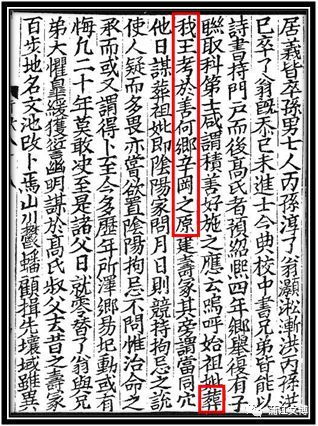 居義皆卒孫男七人丙孫淳了翁灝淞漸洪丙孫洪
已卒了翁既忝己未進士今典校中書兄弟皆能以
詩書持門戸而後高氏者禎紹熙四年鄉舉復有子
聮取科第士咸謂積善好施之應云嗚呼始祖妣葬
我王考於善何鄉辛岡之原建壽冢其旁謂當同穴
他日謀葬祖妣即陰陽家問月日則競持拘忌之說
使人疑而多畏亦嘗欲置陰陽拘忌不問惟治命之
承而或又謂得卜至今多歷年所澤鄉易圮動或有
悔凡二十年莫敢决至是諸父日就零替了翁與兄
弟大懼皇緩獲譴幽明謀於高氏叔父去昔之壽冢
百步地名文池改卜焉山川鬱蟠顧揖先壤域雖異
蒲江文博